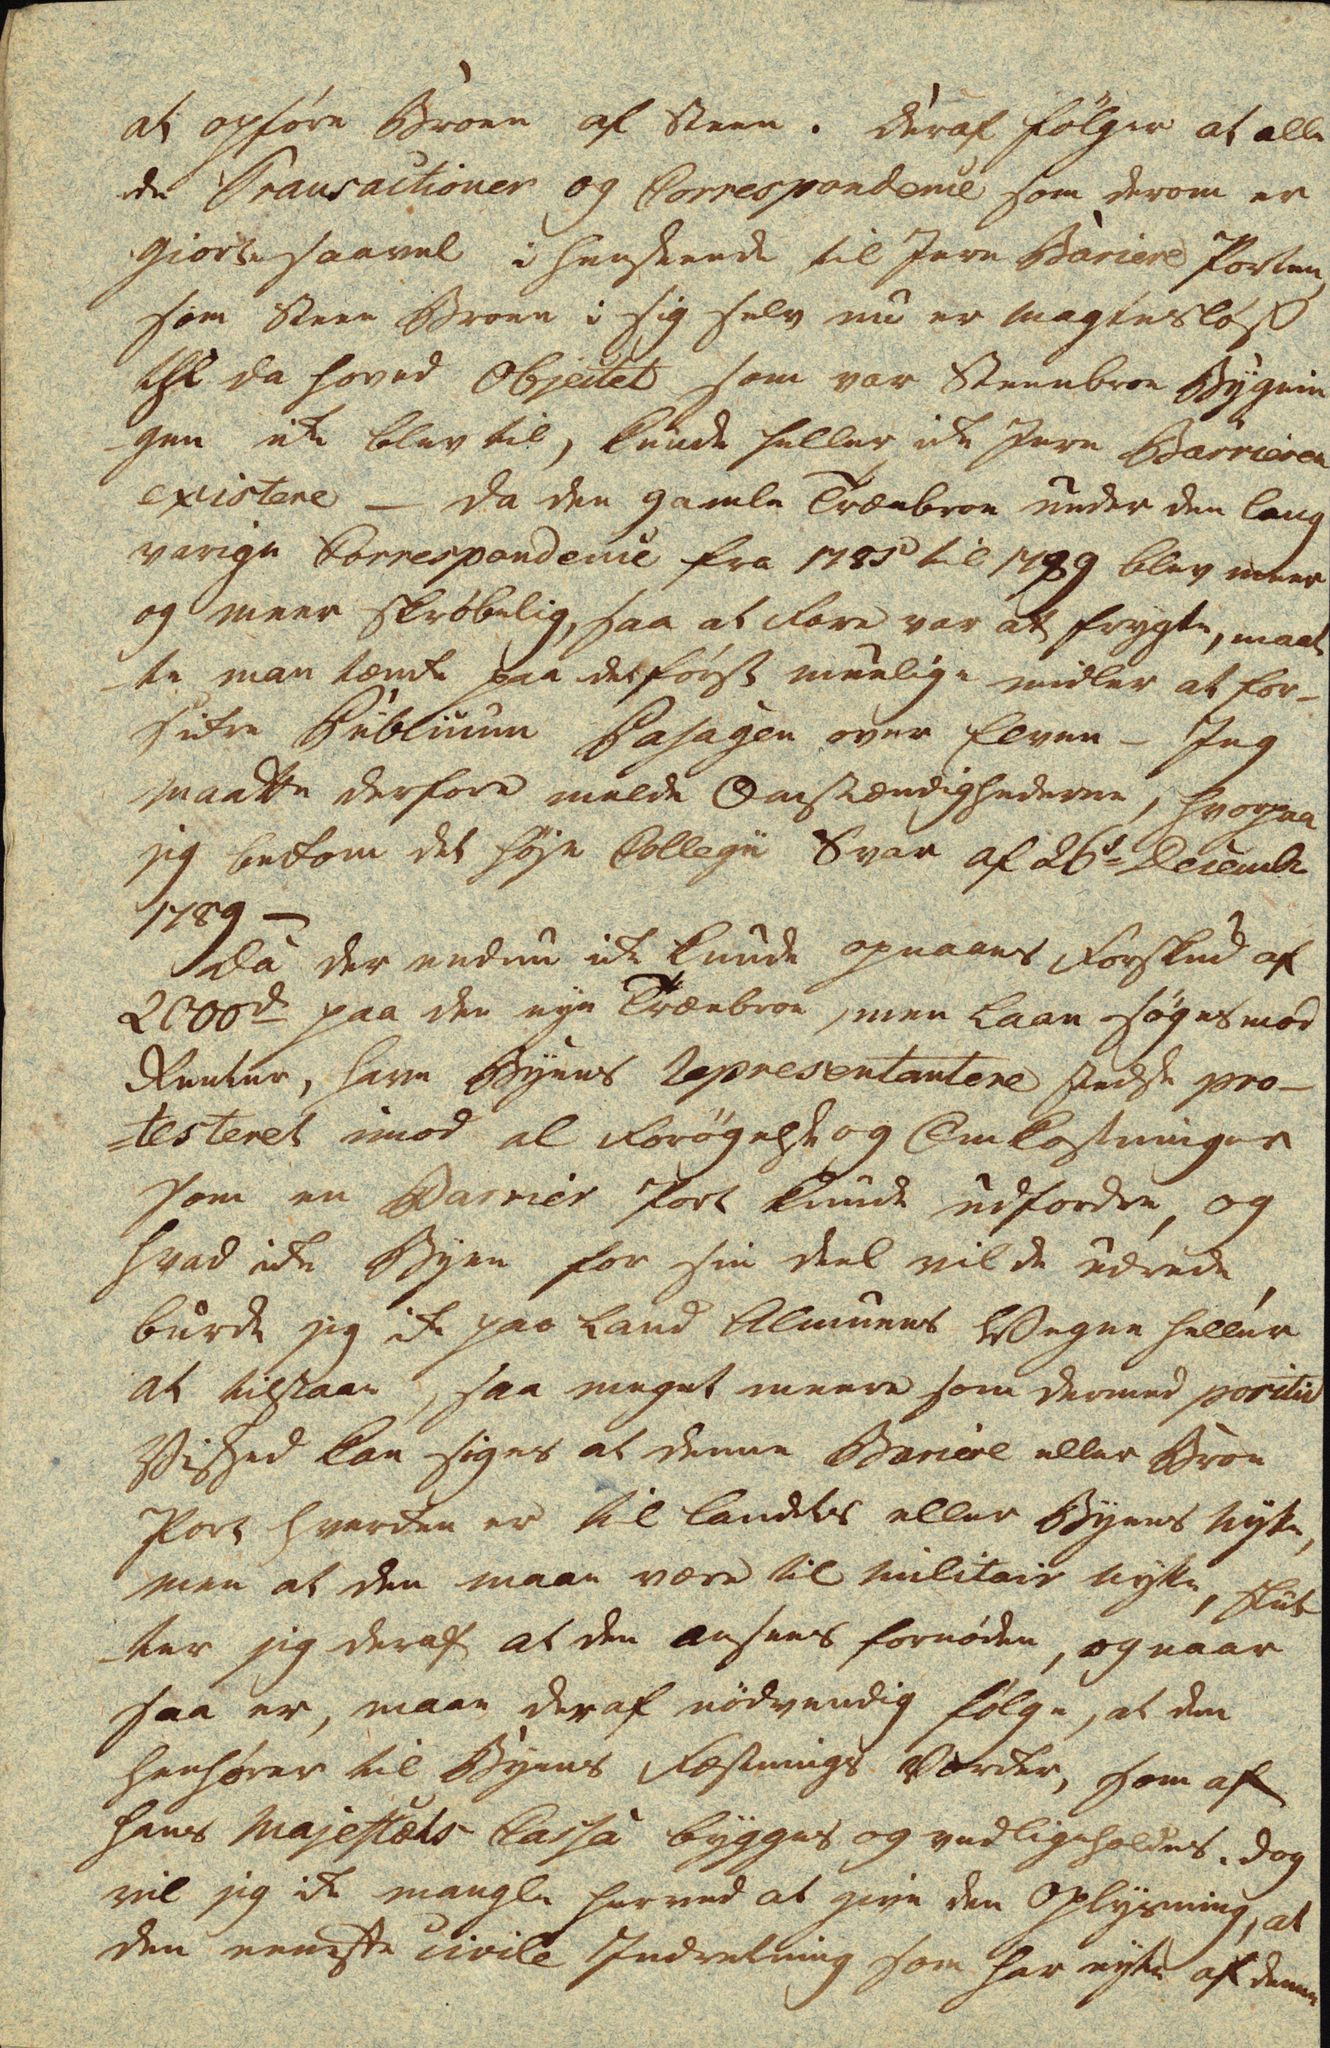 at opføre Broen af Steen. Deraf følger at alle
de Transactioner og Correspondence som derom er
giort saavel i henseende til Jern Bariere Porten,
som Steen Broen i sig selv nu er magtesløs
thi da hoved Objectet som var Steenbroe Bygnin
gen ikke blev til, kunde heller ikke Jern Barrieren
existere – da den gamle Træebroe under den lang
varige Correspondence fra 1785 til 1789 blev meer
og meer skrøbelig, saa at Fare var at frygte, maat
-te man tænke paa de først muelige midler at for-
sikre Publicum Pasagen over Elven – Jeg
maatte derfore melde Omstændighederne, hvorpaa
jeg bekom det høje Collegii Svar af 26de Decembr
1789 –
Da der endnu ikke kunde opnaaes Forskud af
2000 rd paa den nye Træebroe, men Laan søges mod
Renter, have Byens Representantere stedse pro-
-testeret imod al Forøgelse og Omkostninger
som en Barrier Port kunde udfordre, og
hvad ikke Byen for sin deel vilde udrede,
burde jeg ikke paa Land Almuens Vegne heller
at tilstaae, saa meget meere som dermed positiv
Vished kan siges at denne Bariere eller Broe
Port hverken er til Landets eller Byens Nytte,
men at den maae være til militair Nytte, slut
-ter jeg deraf at den ansees fornøden, og naar
saa er, maae deraf nødvendig følge, at den
henhører til Byens Fæstnings Værker, som af
Hans Majestæts Cassa bygges og vedligeholdes. Dog
vil jeg ikke mangle herved at give den Oplysning, at
den eeneste civile Indretning som har nytte af denne